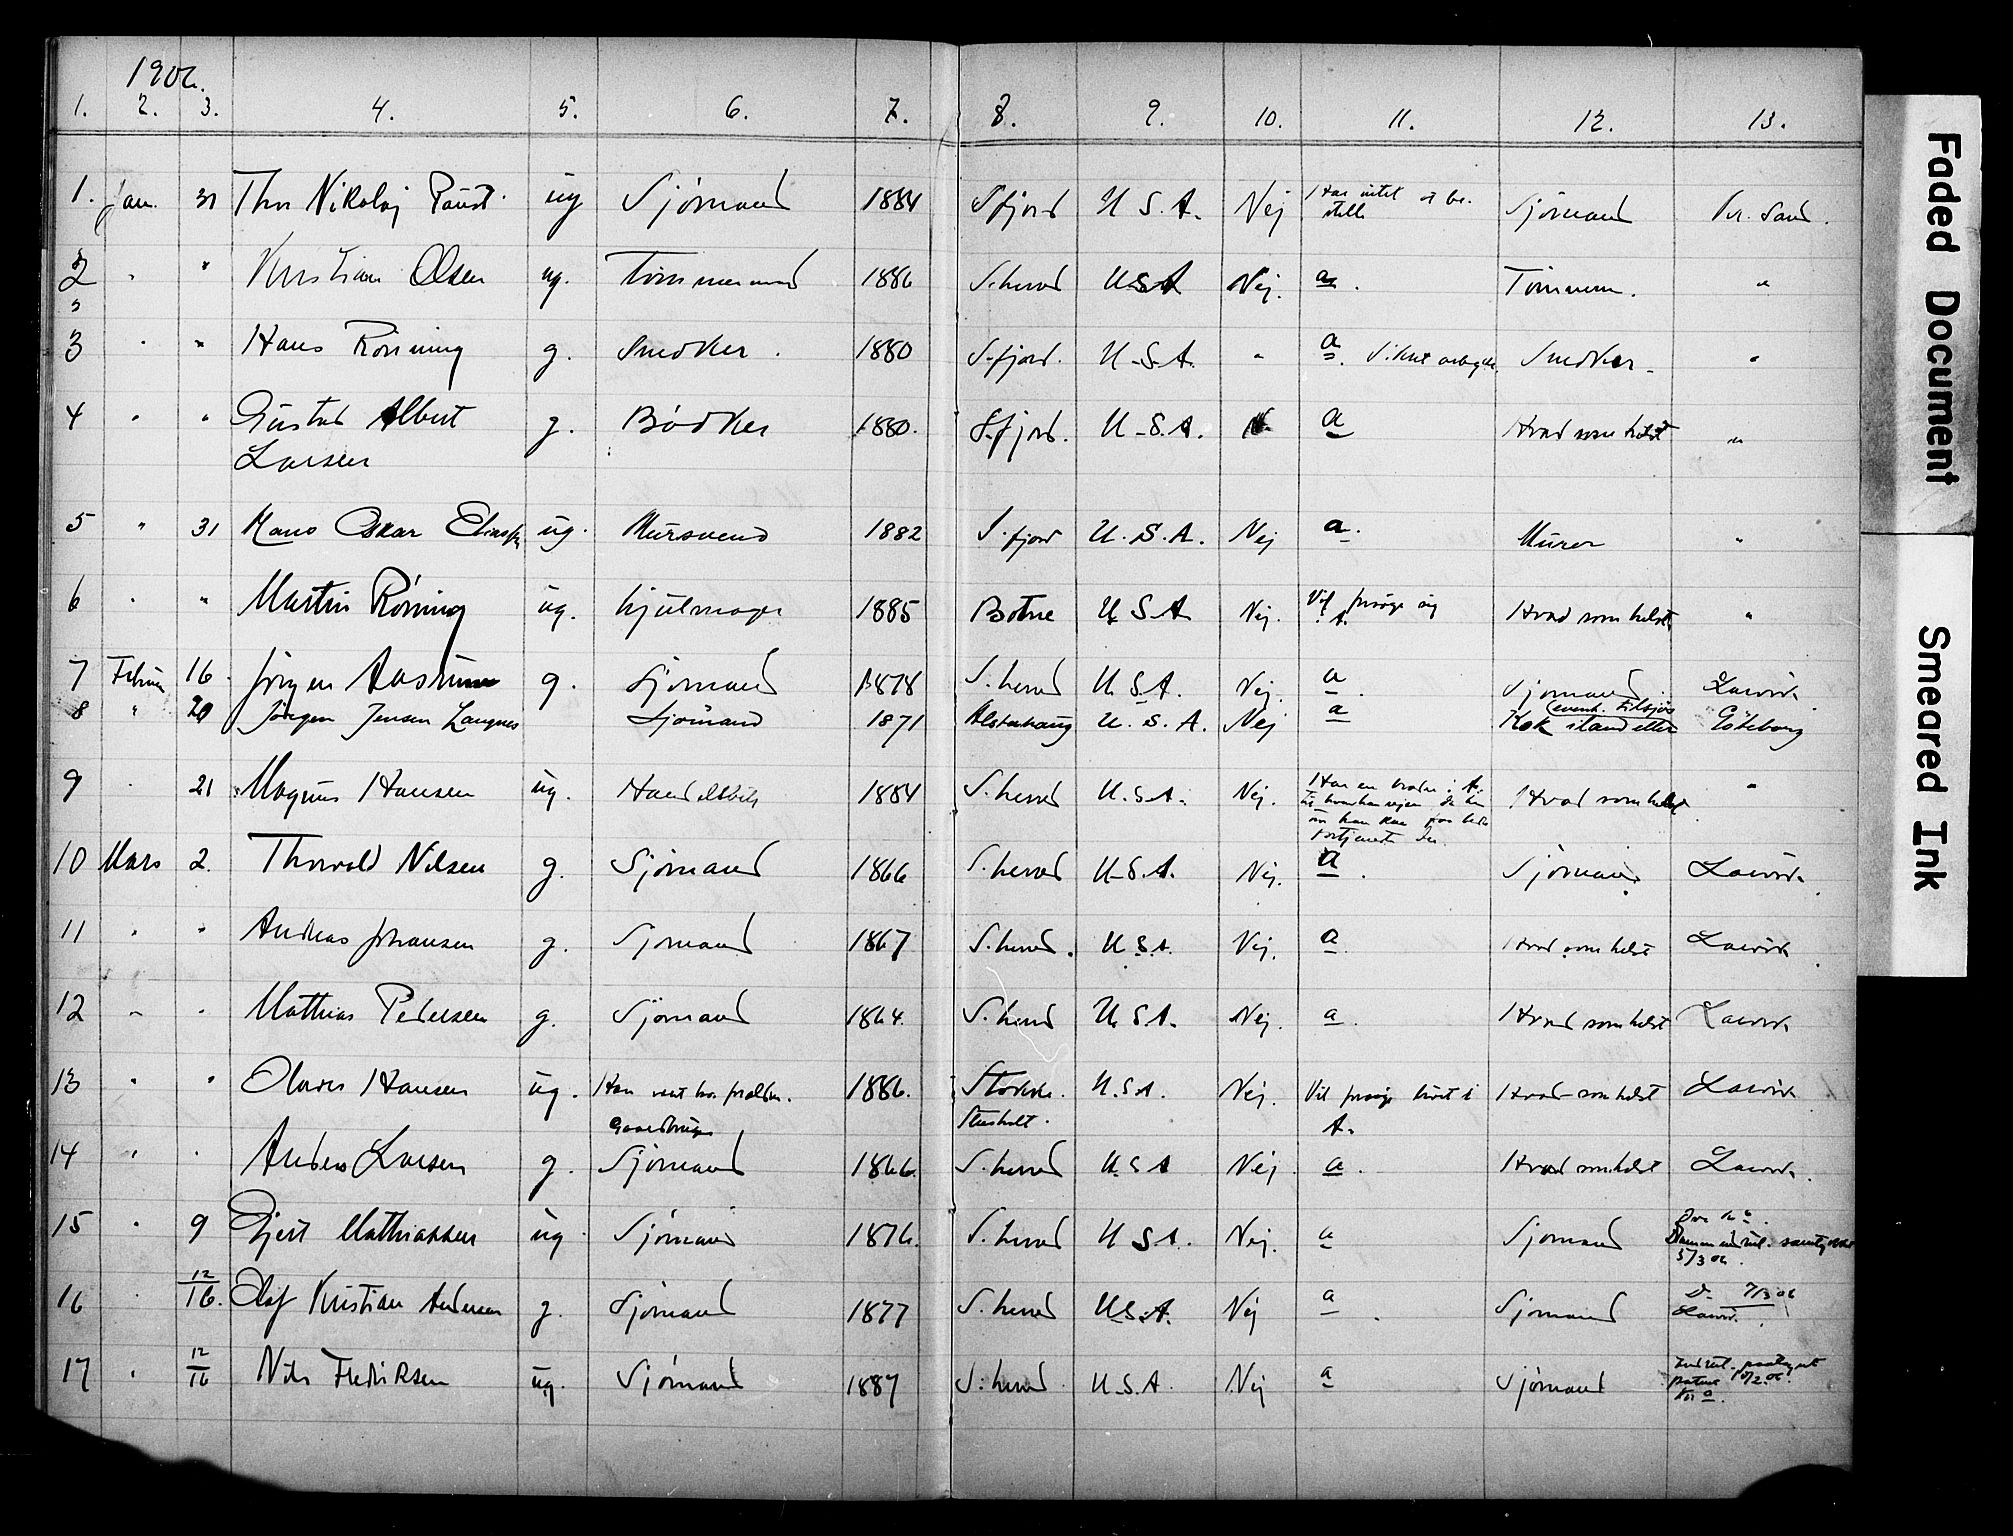 1906.
1. 2. 3. 4. 5. 6. 7. 8. 9. 10. 11. 12. 13.
1. Jan. 31 Thor Nikolaj ug Sjømand 1884 S.fjord U. S. A. Nej Har intet at be- Sjømand Kr. Sand.
stille
2 " " Kristian Olsen ug. Tømmermand 1886 S.herred U.S.A Nej. a. Tømmerm. "
3 " " Hans Rönning g. Snedker. 1880 S.fjord. U.S.A. " a. Snedker "
4 " " Gustav Albert g. Bødker 1880. S.fjord. U.S.A. a Hvad som helst "
Larsen
5 " 31 Hans Oskar ug. Mursvend 1882 S.fjord U.S.A. Nej a. Murer "
6 " " Martin Röning ug. hjulmager 1885 Botne U.S.A Nej. Vil prøve sig Hvad som helst "
i A.
7 Februar 16. Jörgen g. Sjömand 1878 S.herred U.S.A. Nej. a. Sjømand. Larvik.
(event. tilsjøs
8 " 20 Jörgen Jensen Langnes Sjömand 1871 Alstahaug U.S.A. Nej a Kok iland eller Göteborg
9 " 21 Magnus Hansen ug. 1884 S.herred U.S.A. Nej. Har en broder i A. Hvad som helst "
fortjeneste der.
10 Mars 2. Thorvald Nilsen g. Sjömand 1866 S.herred U.S.A. Nej. a. Sjömand Larvik.
11 " " Andreas Johansen g. Sjömand 1867 S.herred. U.S.A. Nej. a Hvad som helst Larvik.
12 " " Mathias Pedersen g. Sjömand 1864. S.herred U.S.A. Nej. a. Hvad som helst Larvik
13 " " Olaves Hansen ug. Har vært hos 1886. Stokke. U.S.A. Nej. Vil prøve livet i Hvad som helst Larvik
gaardbruger A.
14 " " Anders Larsen g. Sjömand 1866. S.herred U.S.A Nej. a. Hvad som helst Larvik.
15 " 9 Gjert Mathiassen ug. Sjömand 1876. S.herred U.S.A. Nej. a Sjömand
5/3 06.
16 " 12/16. Olaf Kristian Andersen g. Sjömand 1877 S.herred U.S.A. Nej a. Sjömand D. 7/3 06
Larvik.
17 " 12/16 Nils Fredriksen ug. Sjømand 1887 S.herred U.S.A. Nej a Sjømand
Faded Document
Smeared Ink